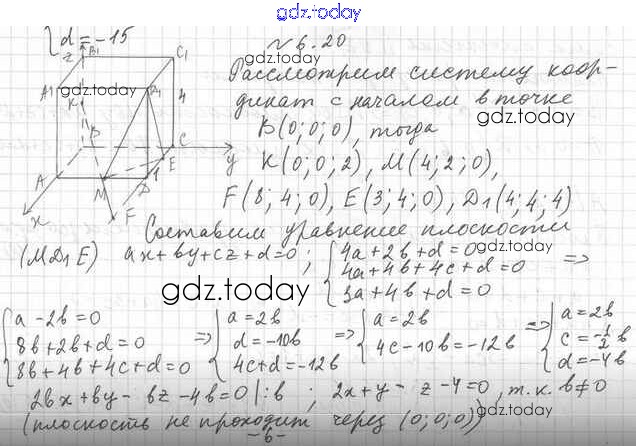 gdz.today
d = -15
№ 6.20
Рассмотрим систему коор-
gdz.today
динат с началом в точке
B(0;0;0), тогда
gdz.today
K(0;0;2), M(4;2;0),
F(8;4;0), E(3;4;0), D₁(4;4;4)
z B₁ C₁ A₁ D₁ K 4 B C y A M D 1 E F x
gdz.today
Составим уравнение плоскости
(MD₁E) ax+by+cz+d=0; { 4a+2b+d=0
4a+4b+4c+d=0 =>
3a+4b+d=0
gdz.today
gdz.today
{ a-2b=0
8b+2b+d=0
8b+4b+4c+d=0
=> { a=2b
d=-10b
4c+d=-12b
=> { a=2b
4c-10b=-12b
=> { a=2b
c=-½b
d=-4b
2bx+by- bz-4b=0 |:b ; 2x+y- z-4=0, т.к. b≠0
(плоскость не проходит через (0;0;0))
gdz.today
-6-